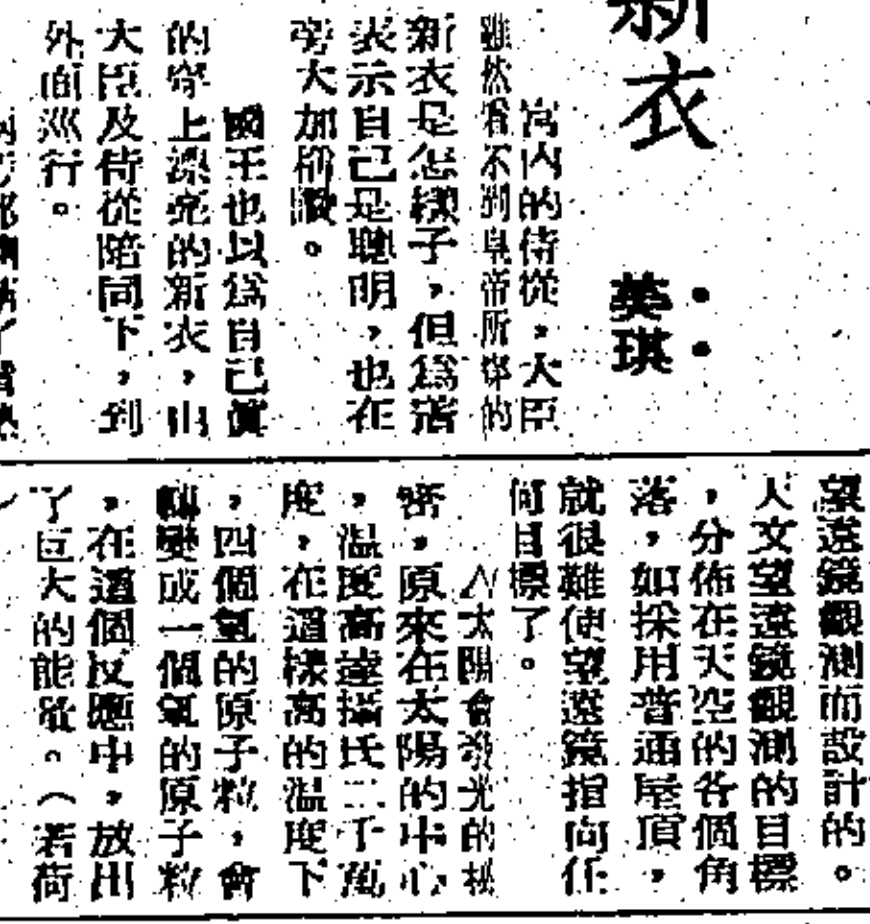 新衣
：英琪
宮內的侍從，大臣
雖然看不到皇帝所穿的
新衣是怎樣子，但爲着
表示自己是聰明，也在
旁大加稱讚。
國王也以爲自己真
的穿上漂亮的新衣，由
大臣及侍從陪同下，到
外面巡行。
望遠鏡觀測而設計的。
人文望遠鏡觀測的目標
，分佈在天空的各個角
落，如採用普通屋頂，
就很難使望遠鏡指向任
何目標了。
太陽會發光的秘
密，原來在太陽的中心
，溫度高達攝氏二千萬
度，在這樣高的溫度下
，四個氫的原子粒，會
轉變成一個氦的原子粒
，在這個反應中，放出
了巨大的能量。（若荷